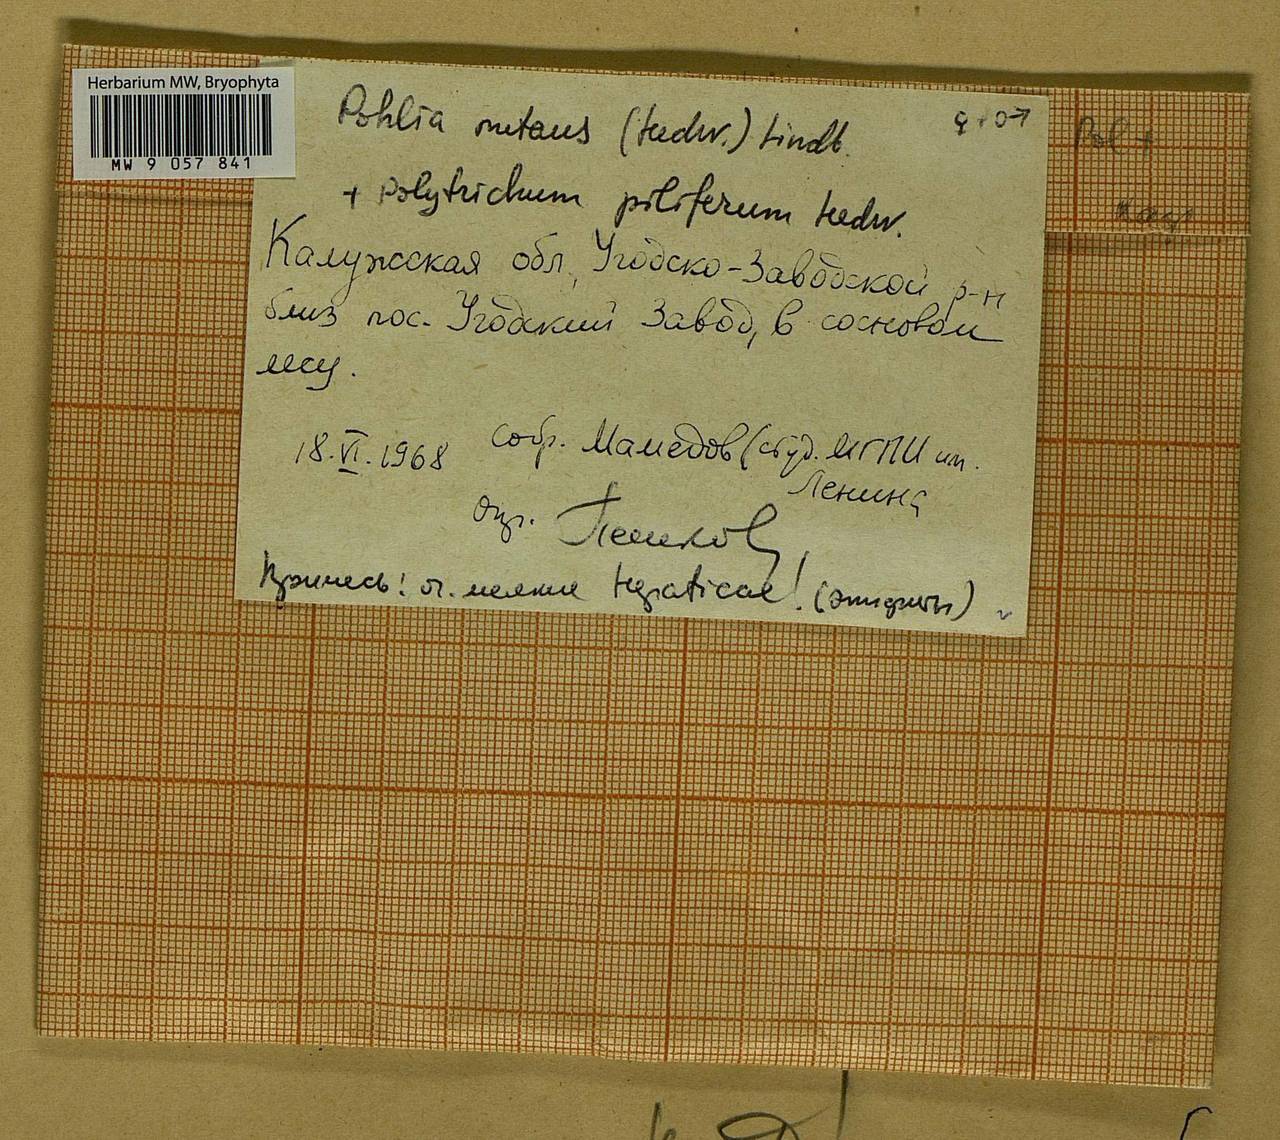 Herbarium MW, Bryophyta
MW 9 057 841
Pohlia nutans (Hedw.) Lindb. ♀+♂
+ Polytrichum piliferum Hedw.
Калужская обл., Угодско-Заводской р-н
близ пос. Угодский Завод, в сосновом
лесу.
18.VI.1968 собр. Мамедов (студ. МГПИ им.
Ленина
опр.
Примесь! оч. мелкие Hepaticae! (эпифиты)
Pol +